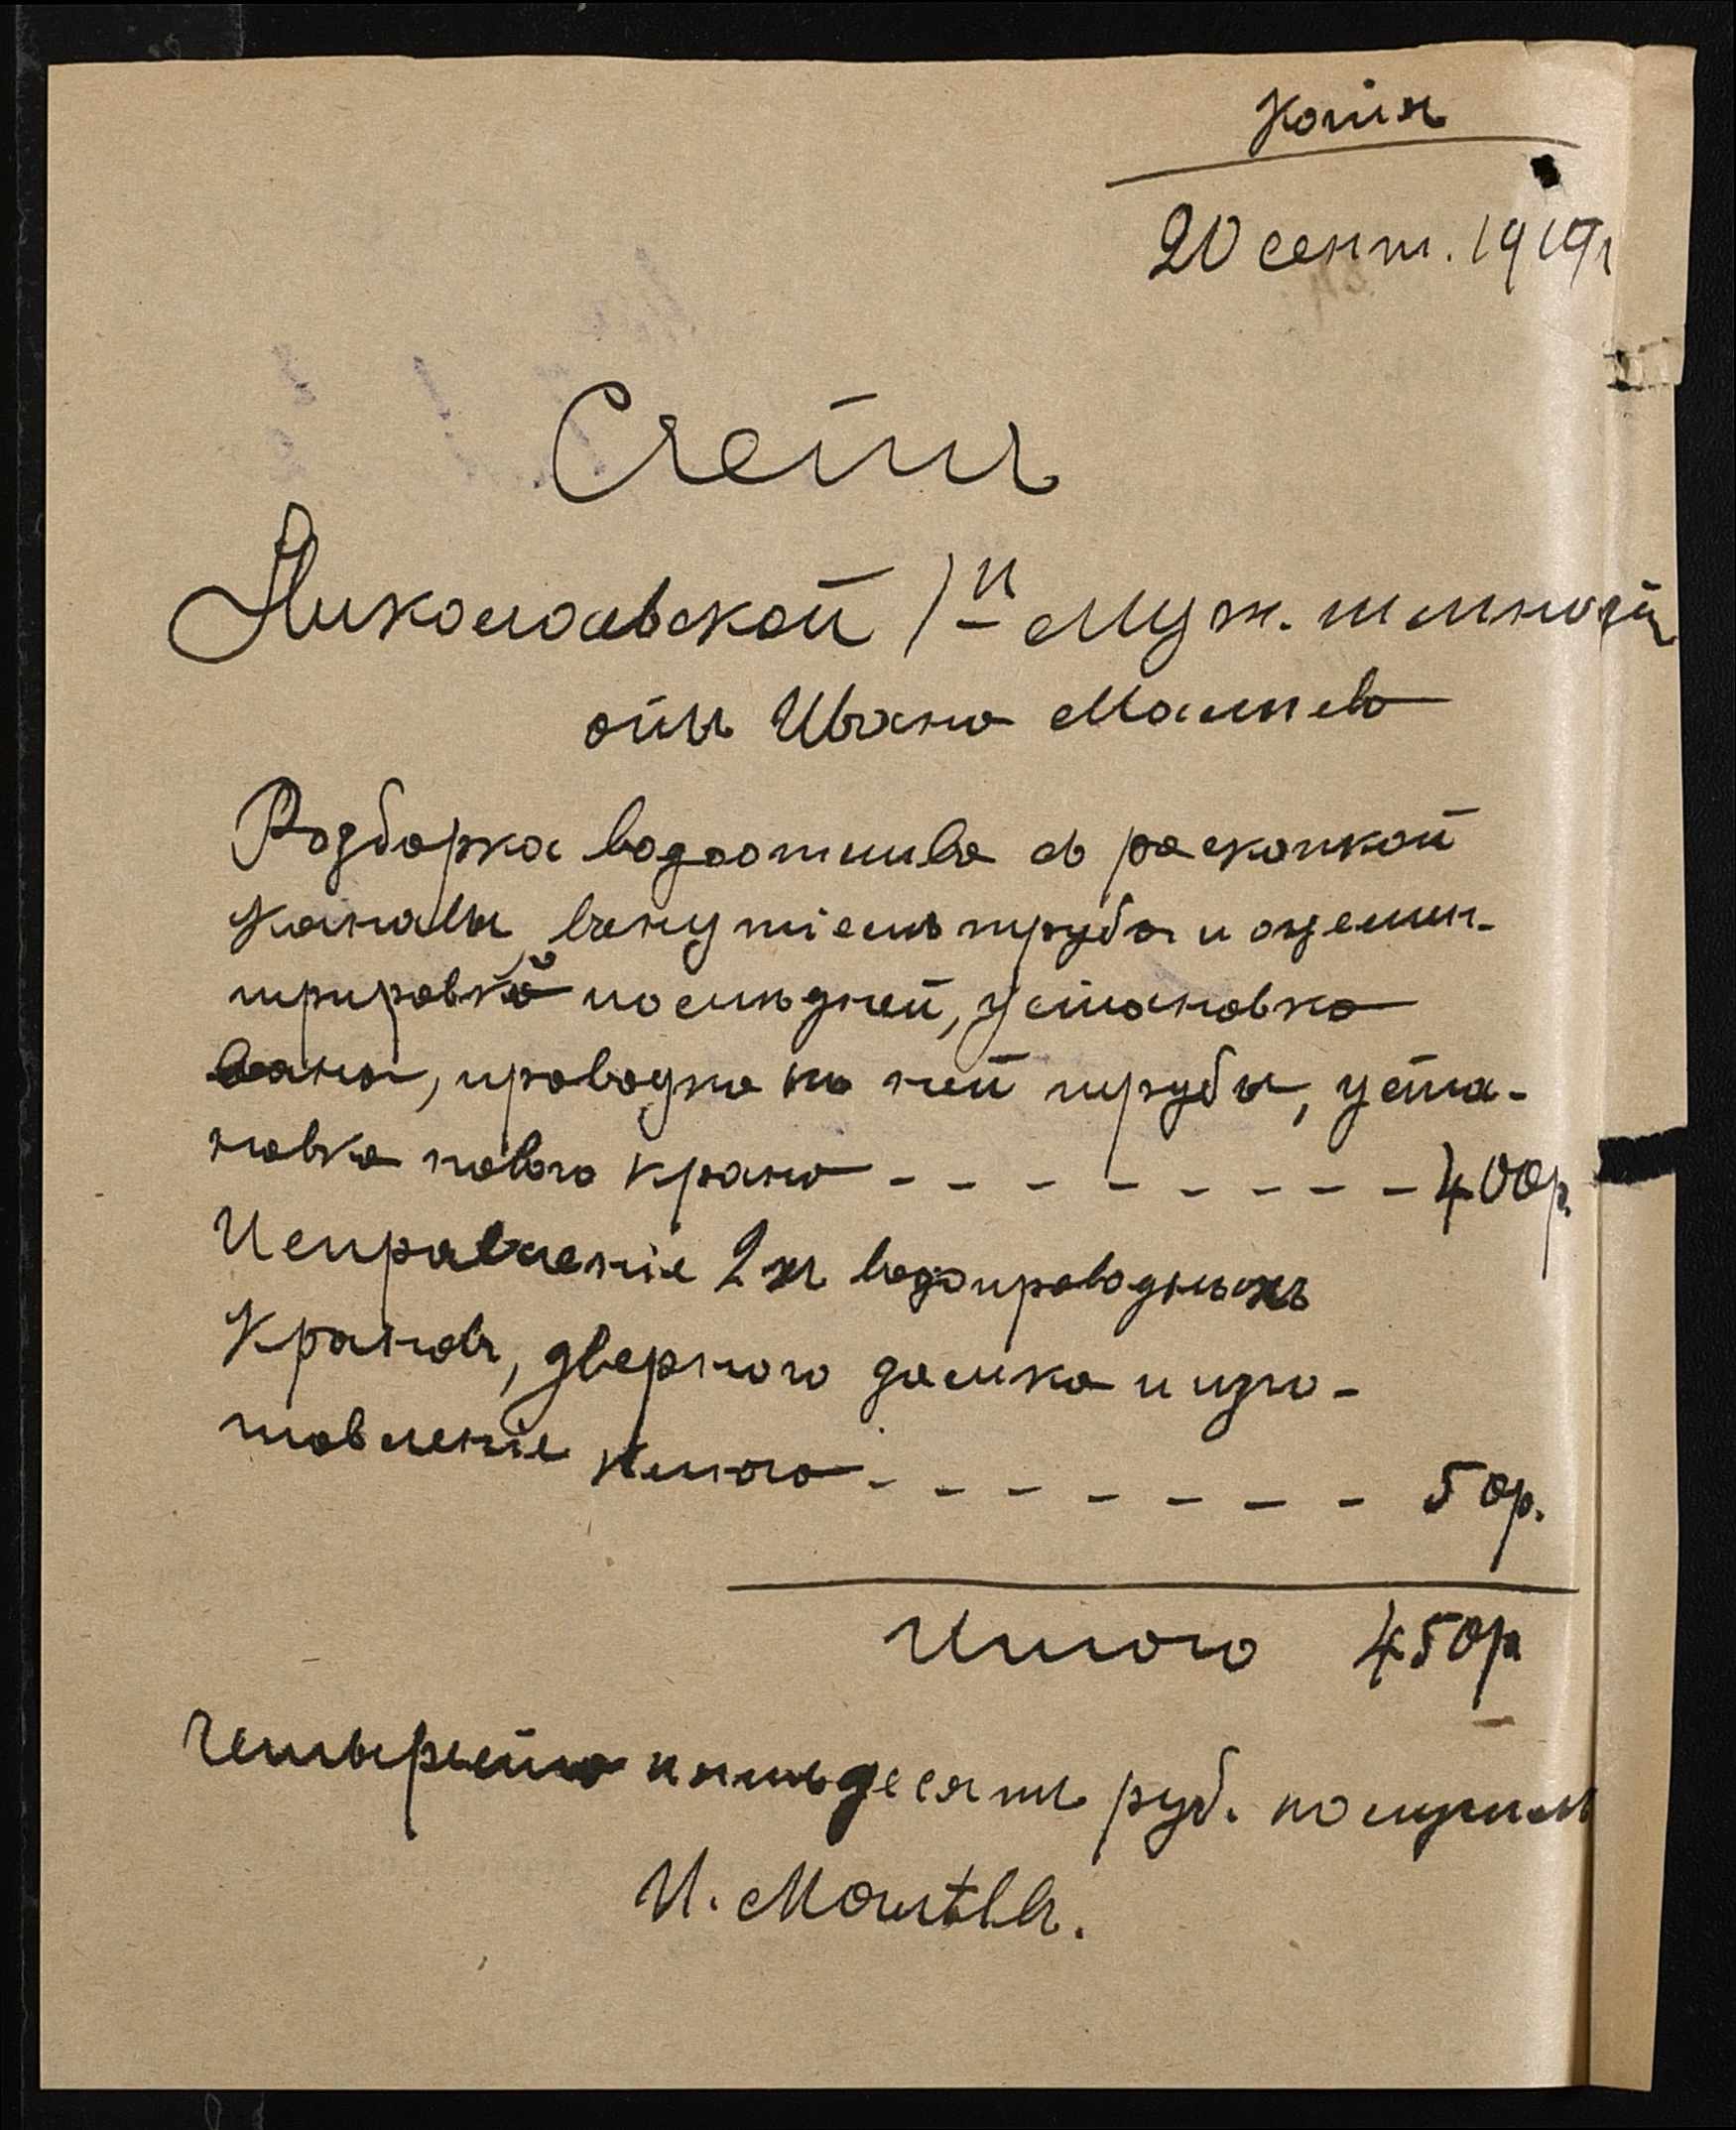 Копія
20 сент. 1919 г
Счетъ
Николаевской 1й Муж. гимназіи
отъ Ивана Малѣева
Разборка водоотлива съ раскопкой
канавы, вынутіемъ трубы и оцемен-
тировкой последней, установка
ваны, проводка къ ней трубы, уста-
новка нового крана - - - - - - - - 400р.
Исправленіе 2х водопроводныхъ
кранов, дверного замка и изго-
товленіе ключа - - - - - - - 50р.
Итого 450р
Четыреста пятьдесятъ руб. получилъ
И. Малѣевъ.